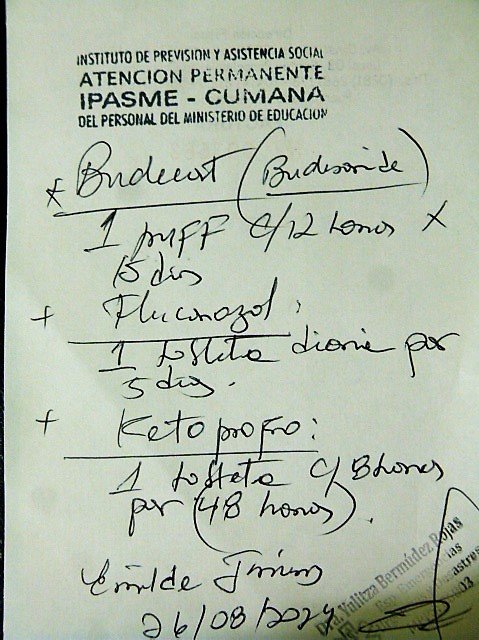 INSTITUTO DE PREVISION Y ASISTENCIA SOCIAL
ATENCION PERMANENTE
IPASME - CUMANA
DEL PERSONAL DEL MINISTERIO DE EDUCACION
Budecort (Budesonide)
1 puff c/12 horas x
15 dias
+ Fluconazol:
1 tableta diaria por
5 dias.
+ Ketoprofro:
1 tableta c/8 horas
por (48 horas).
26/08/2024
Dra. Yulitza Bermúdez Rojas